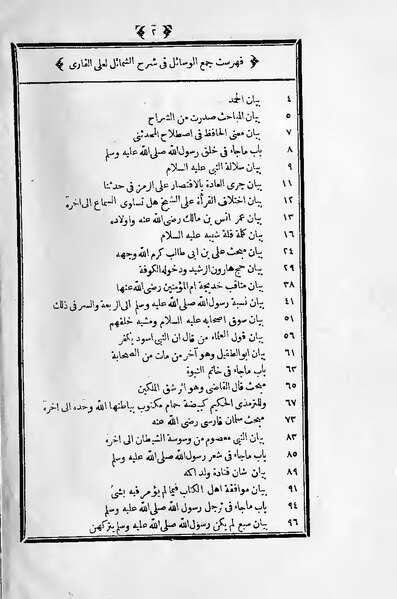 ﴿ ٢ ﴾
﴿ فهرست جمع الوسائل فى شرح الشمائل لعلى القارى ﴾
٤ بيان الحمد
٥ بيان المباحث صدرت من الشراح
٧ بيان معنى الحافظ فى اصطلاح المحدثين
٨ باب ماجاء فى خلق رسول الله صلى الله عليه وسلم
٩ بيان سلالة النبى عليه السلام
١١ بيان جرى العادة بالاقتصار على الرمز فى حدثنا
١٢ بيان اختلاف القرأة على الشيخ هل تساوى السماع الى اخره
١٣ بيان عمر انس بن مالك رضى الله عنه واولاده
١٦ بيان كلة قلة شيبه عليه السلام
٢٤ بيان مبحث على بن ابى طالب كرم الله وجهه
٢٩ بيان حج هارون ارشيد ودخوله الكوفة
٣٨ بيان مناقب خديجة ام المؤمنين رضى الله عنها
٤١ بيان نسبة رسول الله صلى الله عليه وسلم الى اربعة والسر فى ذلك
٥١ بيان سوق اصحابه عليه السلام ومشيه خلفهم
٥٦ بيان قول العلماء من قال ان النبى اسود يكفر
٦١ بيان ابوالطفيل وهو آخر من مات من الصحابة
٦٣ باب ماجاء فى خاتم النبوة
٦٥ مبحث قال القاضى وهو اثر شق الملكين
٦٧ وللترمذى الحكيم كبيضة حمام مكتوب بباطنها الله وحده الى اخره
٧٣ مبحث سلمان فارسى رضى الله عنه
٨٣ بيان النبى معصوم من وسوسة الشيطان الى اخره
٨٥ باب ماجاء فى شعر رسول الله صلى الله عليه وسلم
٨٩ بيان شان قتادة ولد اكمه
٩١ بيان موافقة اهل الكتاب فيما لم يؤمر فيه بشئ
٩٤ باب ماجاء فى ترجل رسول الله صلى الله عليه وسلم
٩٦ بيان سبع لم يكن رسول الله صلى الله عليه وسلم يتركهن